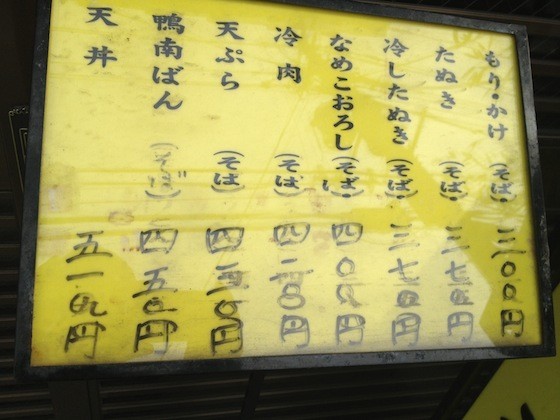 もり・かけ(そば)三〇〇円
たぬき(そば)三五〇円
冷したぬき(そば)三七〇円
なめこおろし(そば)四〇〇円
冷肉(そば)四二〇円
天ぷら(そば)四三〇円
鴨南ばん(そば)四五〇円
天丼 五一〇円